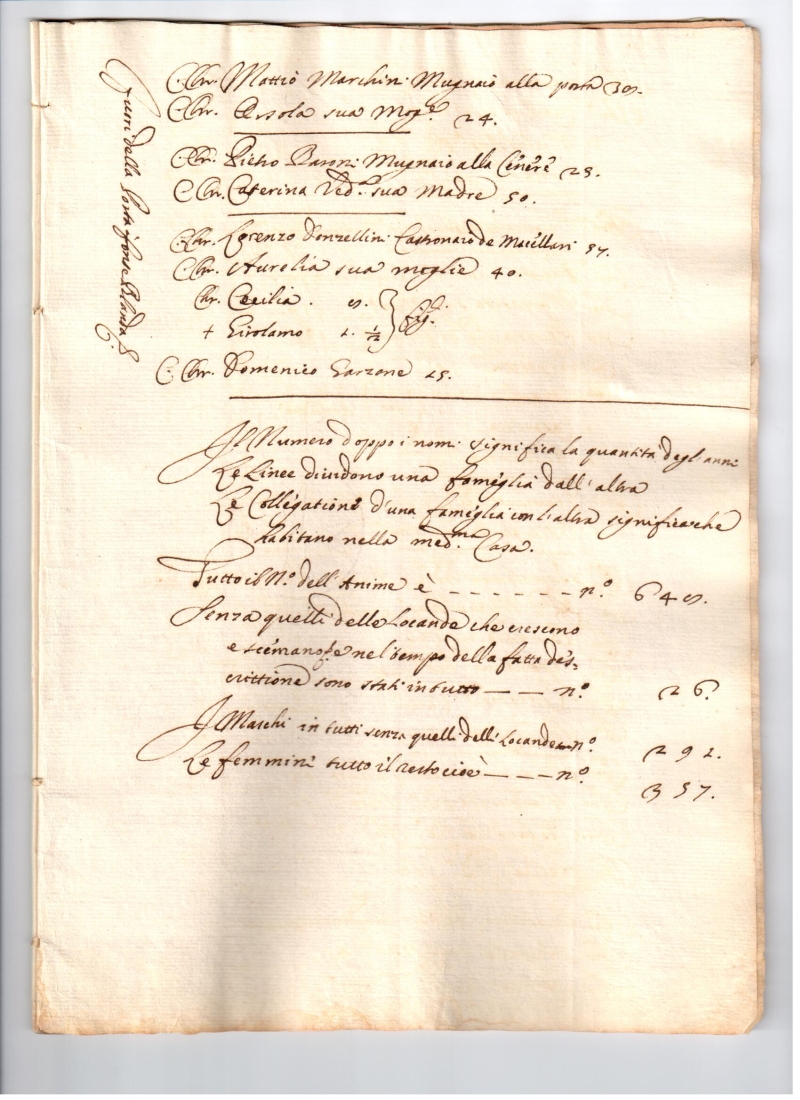 Fuori della Porta forse Blanda
C. Chr. Mattio Marchini Mugnaio alla porta 39.
C Chr. Orsola sua Mogᵉ. 24.
C. Chr. Pietro Baroni Mugnaio alla Cenere 25.
C Chr. Caterina Vedᵃ. sua Madre 50.
C. Chr. Lorenzo Donzellini Castronaro de Macellari 57.
C. Chr. Aurelia sua moglie 40.
Chr. Cecilia . 9.
+ Girolamo 1. 1/12 } fig.
C. Chr. Domenico Garzone 15.
Il Numero doppo i nomi significa la quantità degl'anni
Le Linee dividono una fameglia dall'altra
Le Collegationi d'una fameglia con l'altra significa che
habitano nella med.ᵐᵃ Casa.
Tutto il N.º dell'Anime è - - - - - - - n.º 649.
Senza quelli delle Locande che crescono
e scemano, e nel tempo della fatta des=
crittione sono stati in tutto — — n.º 26.
I Maschi in tutti senza quelli delli Locande — n.º 292.
Le femmini tutto il resto cioè — — — n.º 357.